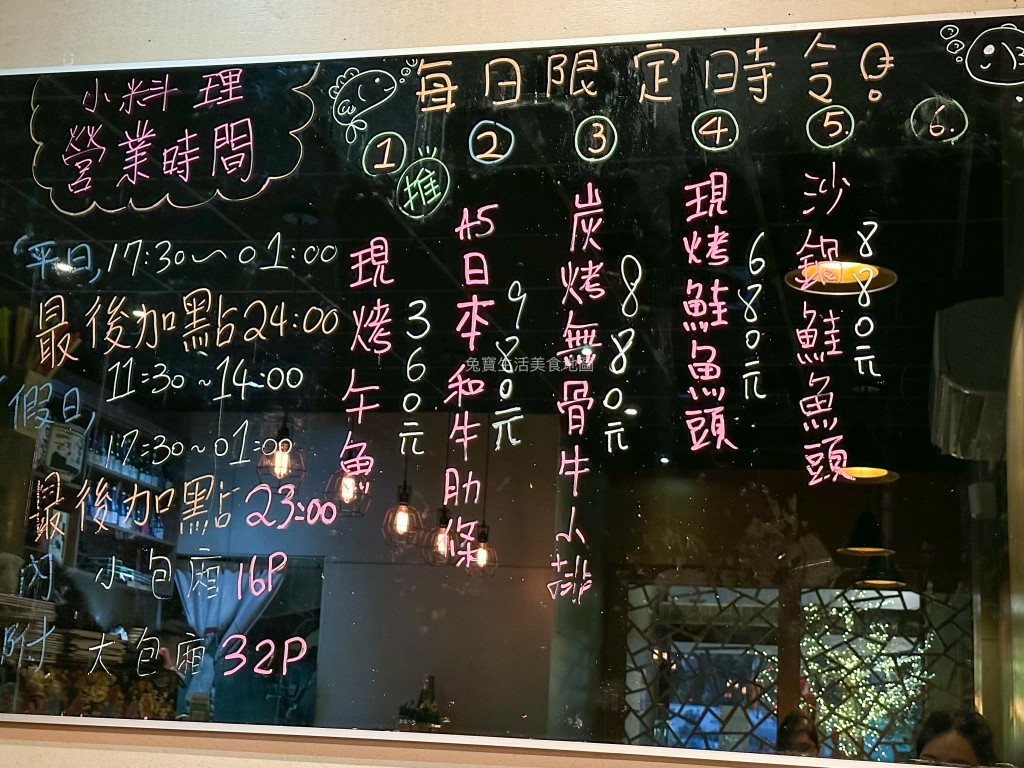 小料理
營業時間
平日,17:30~01:00
最後加點24:00
假日,
11:30~14:00
17:30~01:00
最後加點23:00
內 小包廂16P
附 大包廂32P
每日限定時令!
①
推
現烤午魚
360元
②
A5日本和牛肋條
980元
③
炭烤無骨牛小排
880元
④
現烤鮭魚頭
680元
⑤
沙鍋鮭魚頭
880元
⑥
兔寶生活美食地圖